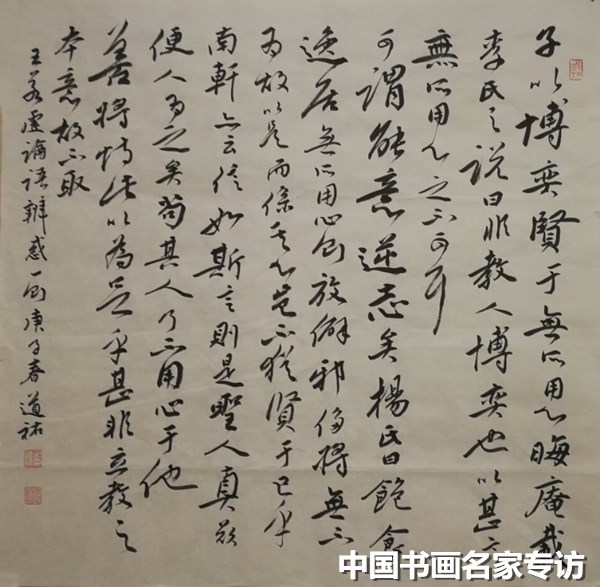 子以博奕賢于無所用心晦庵載
李氏之说曰非教人博奕也以甚言
無所用心之不可耳
可謂能意逆志矣楊氏曰飽食
逸居無所用心則放僻邪侈將無不
为故以是而係其心豈不猶賢于已乎
南軒亦云信如斯言則是聖人真欲
使人为之矣苟其人乃不用心于他
善將恃此以為足乎甚非立教之
本意故不取
王若虛論語辨惑一則庚子春道祐
中国书画名家专访